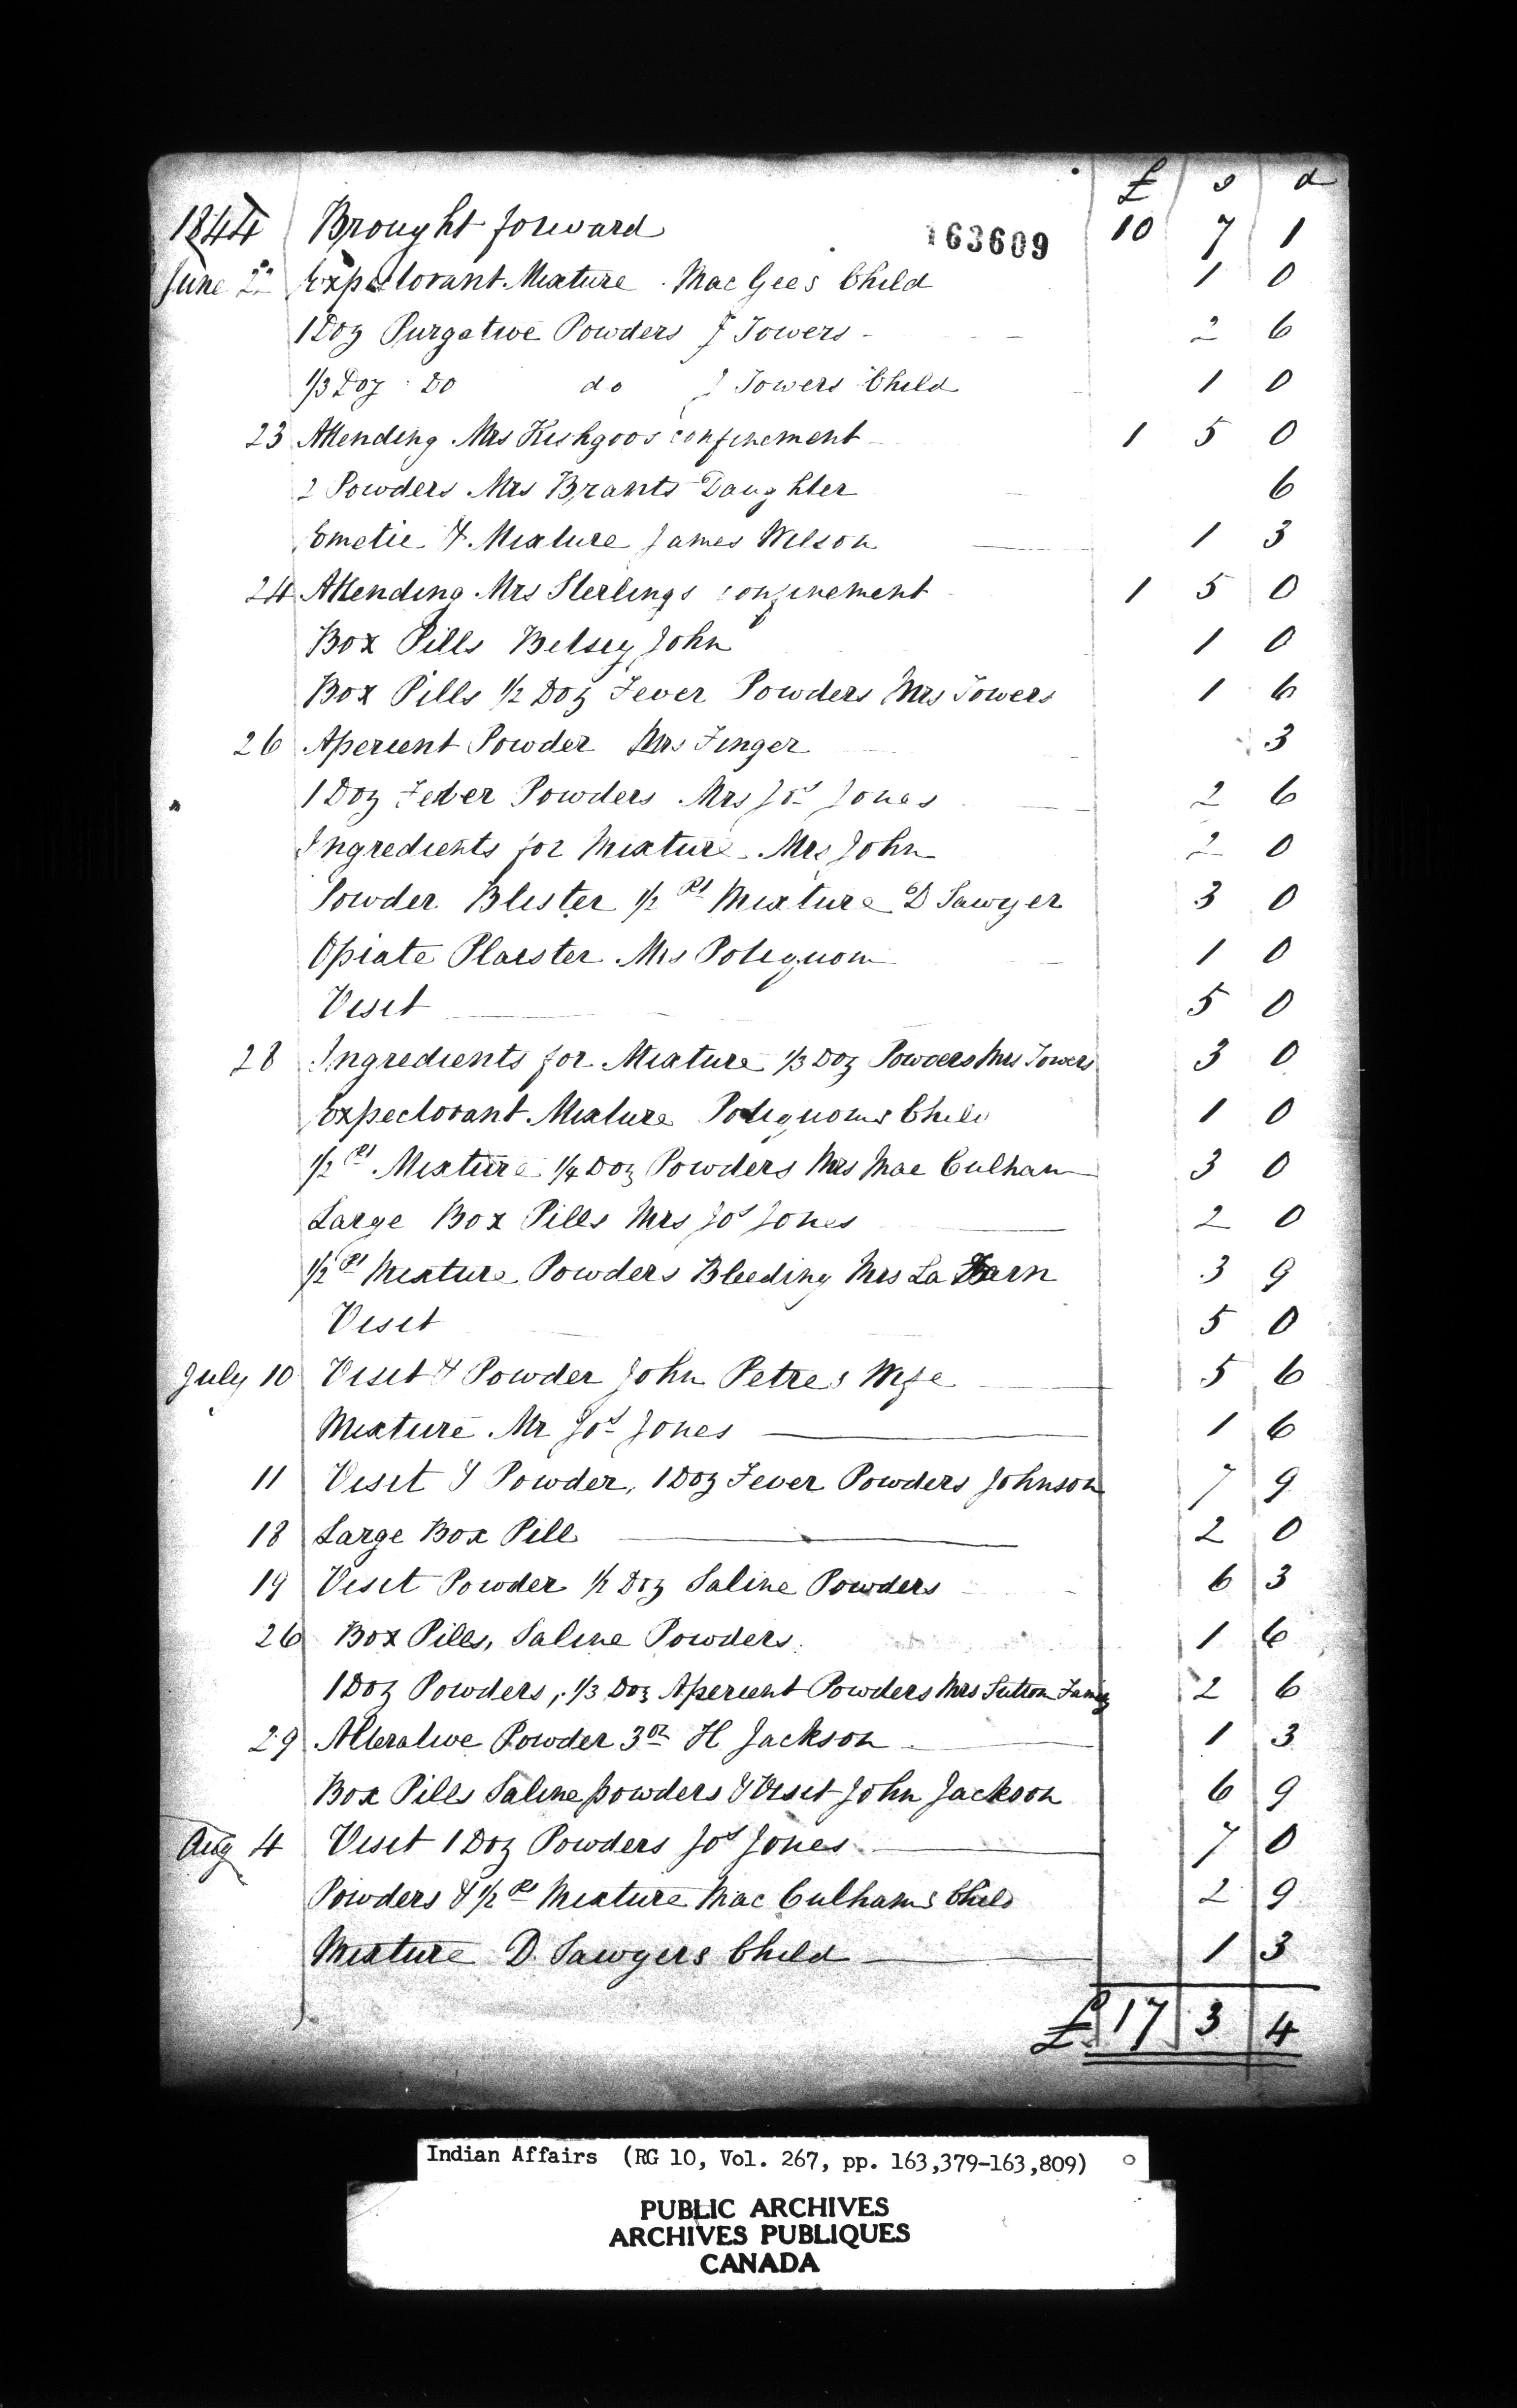 £ s d
1844 Brought forward 163609 10 7 1
June 22 Expectorant Mixture Mac Gees Child 1 0
1 Doz Purgative Powders J Towers 2 6
1/3 Doz Do do J Towers Child 1 0
23 Attending Mrs Kishgoos confinement 1 5 0
2 Powders Mrs Brants Daughter 6
Emetic & Mixture James Wilson 1 3
24 Attending Mrs Sterlings confinement 1 5 0
Box Pills Betsey John 1 0
Box Pills 1/2 Doz Fever Powders Mrs Towers 1 6
26 Aperient Powder Mrs Finger 3
1 Doz Fever Powders Mrs Jos Jones 2 6
Ingredients for Mixture Mrs John 2 0
Powder Blister 1/2 Pt Mixture D Sawyer 3 0
Opiate Plaister Mrs Potiquom 1 0
Visit 5 0
28 Ingredients for Mixture 1/3 Doz Powders Mrs Towers 3 0
Expectorant Mixture Potiquoms Child 1 0
1/2 Pt Mixture 1/4 Doz Powders Mrs Mac Culham 3 0
Large Box Pills Mrs Jos Jones 2 0
1/2 Pt Mixture Powders Bleeding Mrs La 3 9
Visit 5 0
July 10 Visit & Powder John Petres Wife 5 6
Mixture Mr Jos Jones 1 6
11 Visit & Powder, 1 Doz Fever Powders Johnson 7 9
18 Large Box Pill 2 0
19 Visit Powder 1/2 Doz Saline Powders 6 3
26 Box Pills, Saline Powders. 1 6
1 Doz Powders, 1/3 Doz Aperient Powders Mrs Sutton 2 6
29 Alterative Powder 3oz H Jackson 1 3
Box Pills Saline powders & Visit John Jackson 6 9
Aug 4 Visit 1 Doz Powders Jos Jones 7 0
Powders & 1/2 Pt Mixture Mac Culhams Child 2 9
Mixture D. Sawyers Child 1 3
£ 17 3 4
Indian Affairs (RG 10, Vol. 267, pp. 163,379-163,809)
PUBLIC ARCHIVES
ARCHIVES PUBLIQUES
CANADA